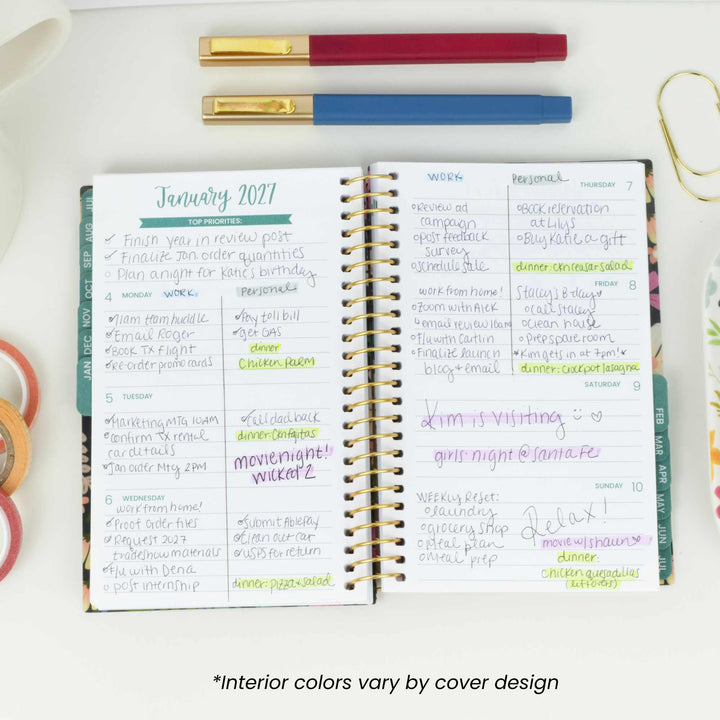 January 2027
TOP PRIORITIES:
Finish year in review post
Finalize Jan order quantities
Plan a night for Katie's birthday
4 MONDAY WORK Personal
11am team huddle
Email Roger
Book TX flight
Re-order promo cards
Pay toll bill
get GAS
dinner
Chicken Parm
5 TUESDAY
Marketing MTG 10AM
confirm TX rental
car details
Jan order Mtg 2PM
Call dad back
dinner:
movie night!
WICKED 2
6 WEDNESDAY
work from home!
Proof order files
Request 2027
tradeshow materials
F/u with Dena
post internship
Submit AblePay
Clean out car
USPS for return
dinner: pizza + salad
WORK Personal THURSDAY 7
Review ad
campaign
post feedback
survey
schedule sale
Book reservation
at Lily's
Buy Katie a gift
dinner: ckn ceasar salad
FRIDAY 8
work from home!
Zoom with Alek
email review 10am
F/u with Caitlin
Finalize launch
blog + email
Stacey's B-day
call Stacey
clean house
Prep spare room
*Kim gets in at 7pm!*
dinner: crockpot lasagna
SATURDAY 9
Kim is visiting
girls' night @ Santa Fe
SUNDAY 10
WEEKLY Reset:
laundry
grocery shop
meal plan
meal prep
Relax!
movie w/ shaun
dinner:
chicken quesadillas
(leftovers)
JUL
AUG
SEP
OCT
NOV
DEC
JAN
FEB
MAR
APR
MAY
JUN
JUL
*Interior colors vary by cover design